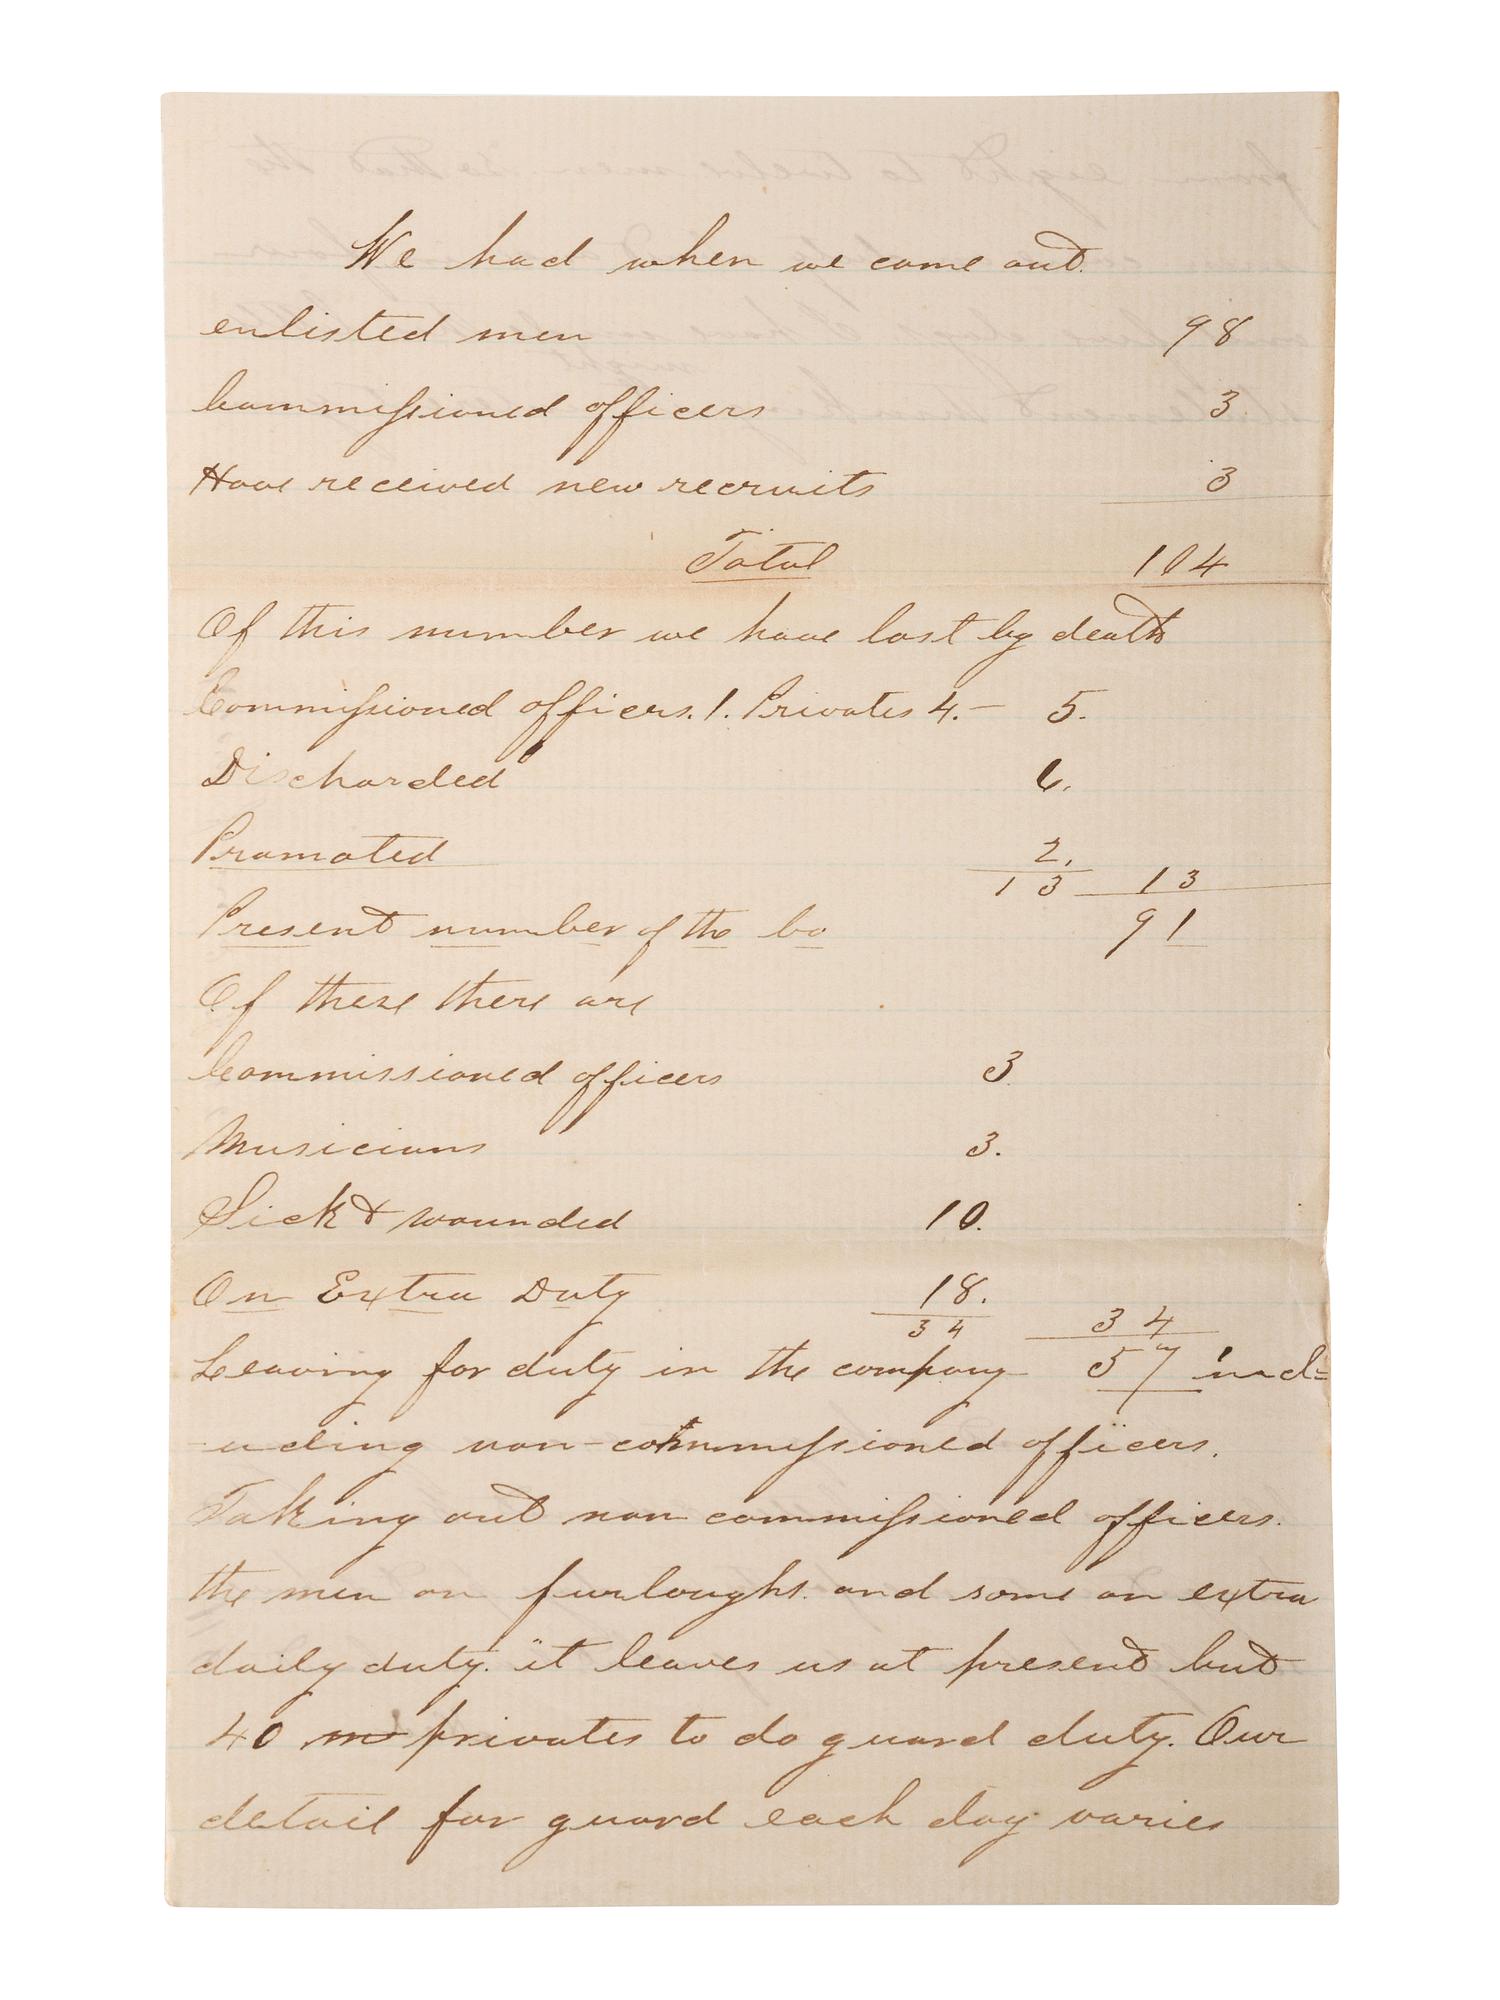 We had when we came out.
enlisted men 98
Commissioned officers 3
Have received new recruits 3
Total 104
Of this number we have lost by death
Commissioned officers. 1. Privates 4. – 5.
Discharded 6.
Promoted 2.
13 13
Present number of the Co 91
Of these there are
Commissioned officers 3
Musicians 3.
Sick & wounded 10.
On Extra Duty 18.
34 34
Leaving for duty in the company 57 incl=
-uding non-commissioned officers.
Taking out non commissioned officers.
the men on furloughs. and some on extra
daily duty. it leaves us at present but
40 m privates to do guard duty. Our
detail for guard each day varies